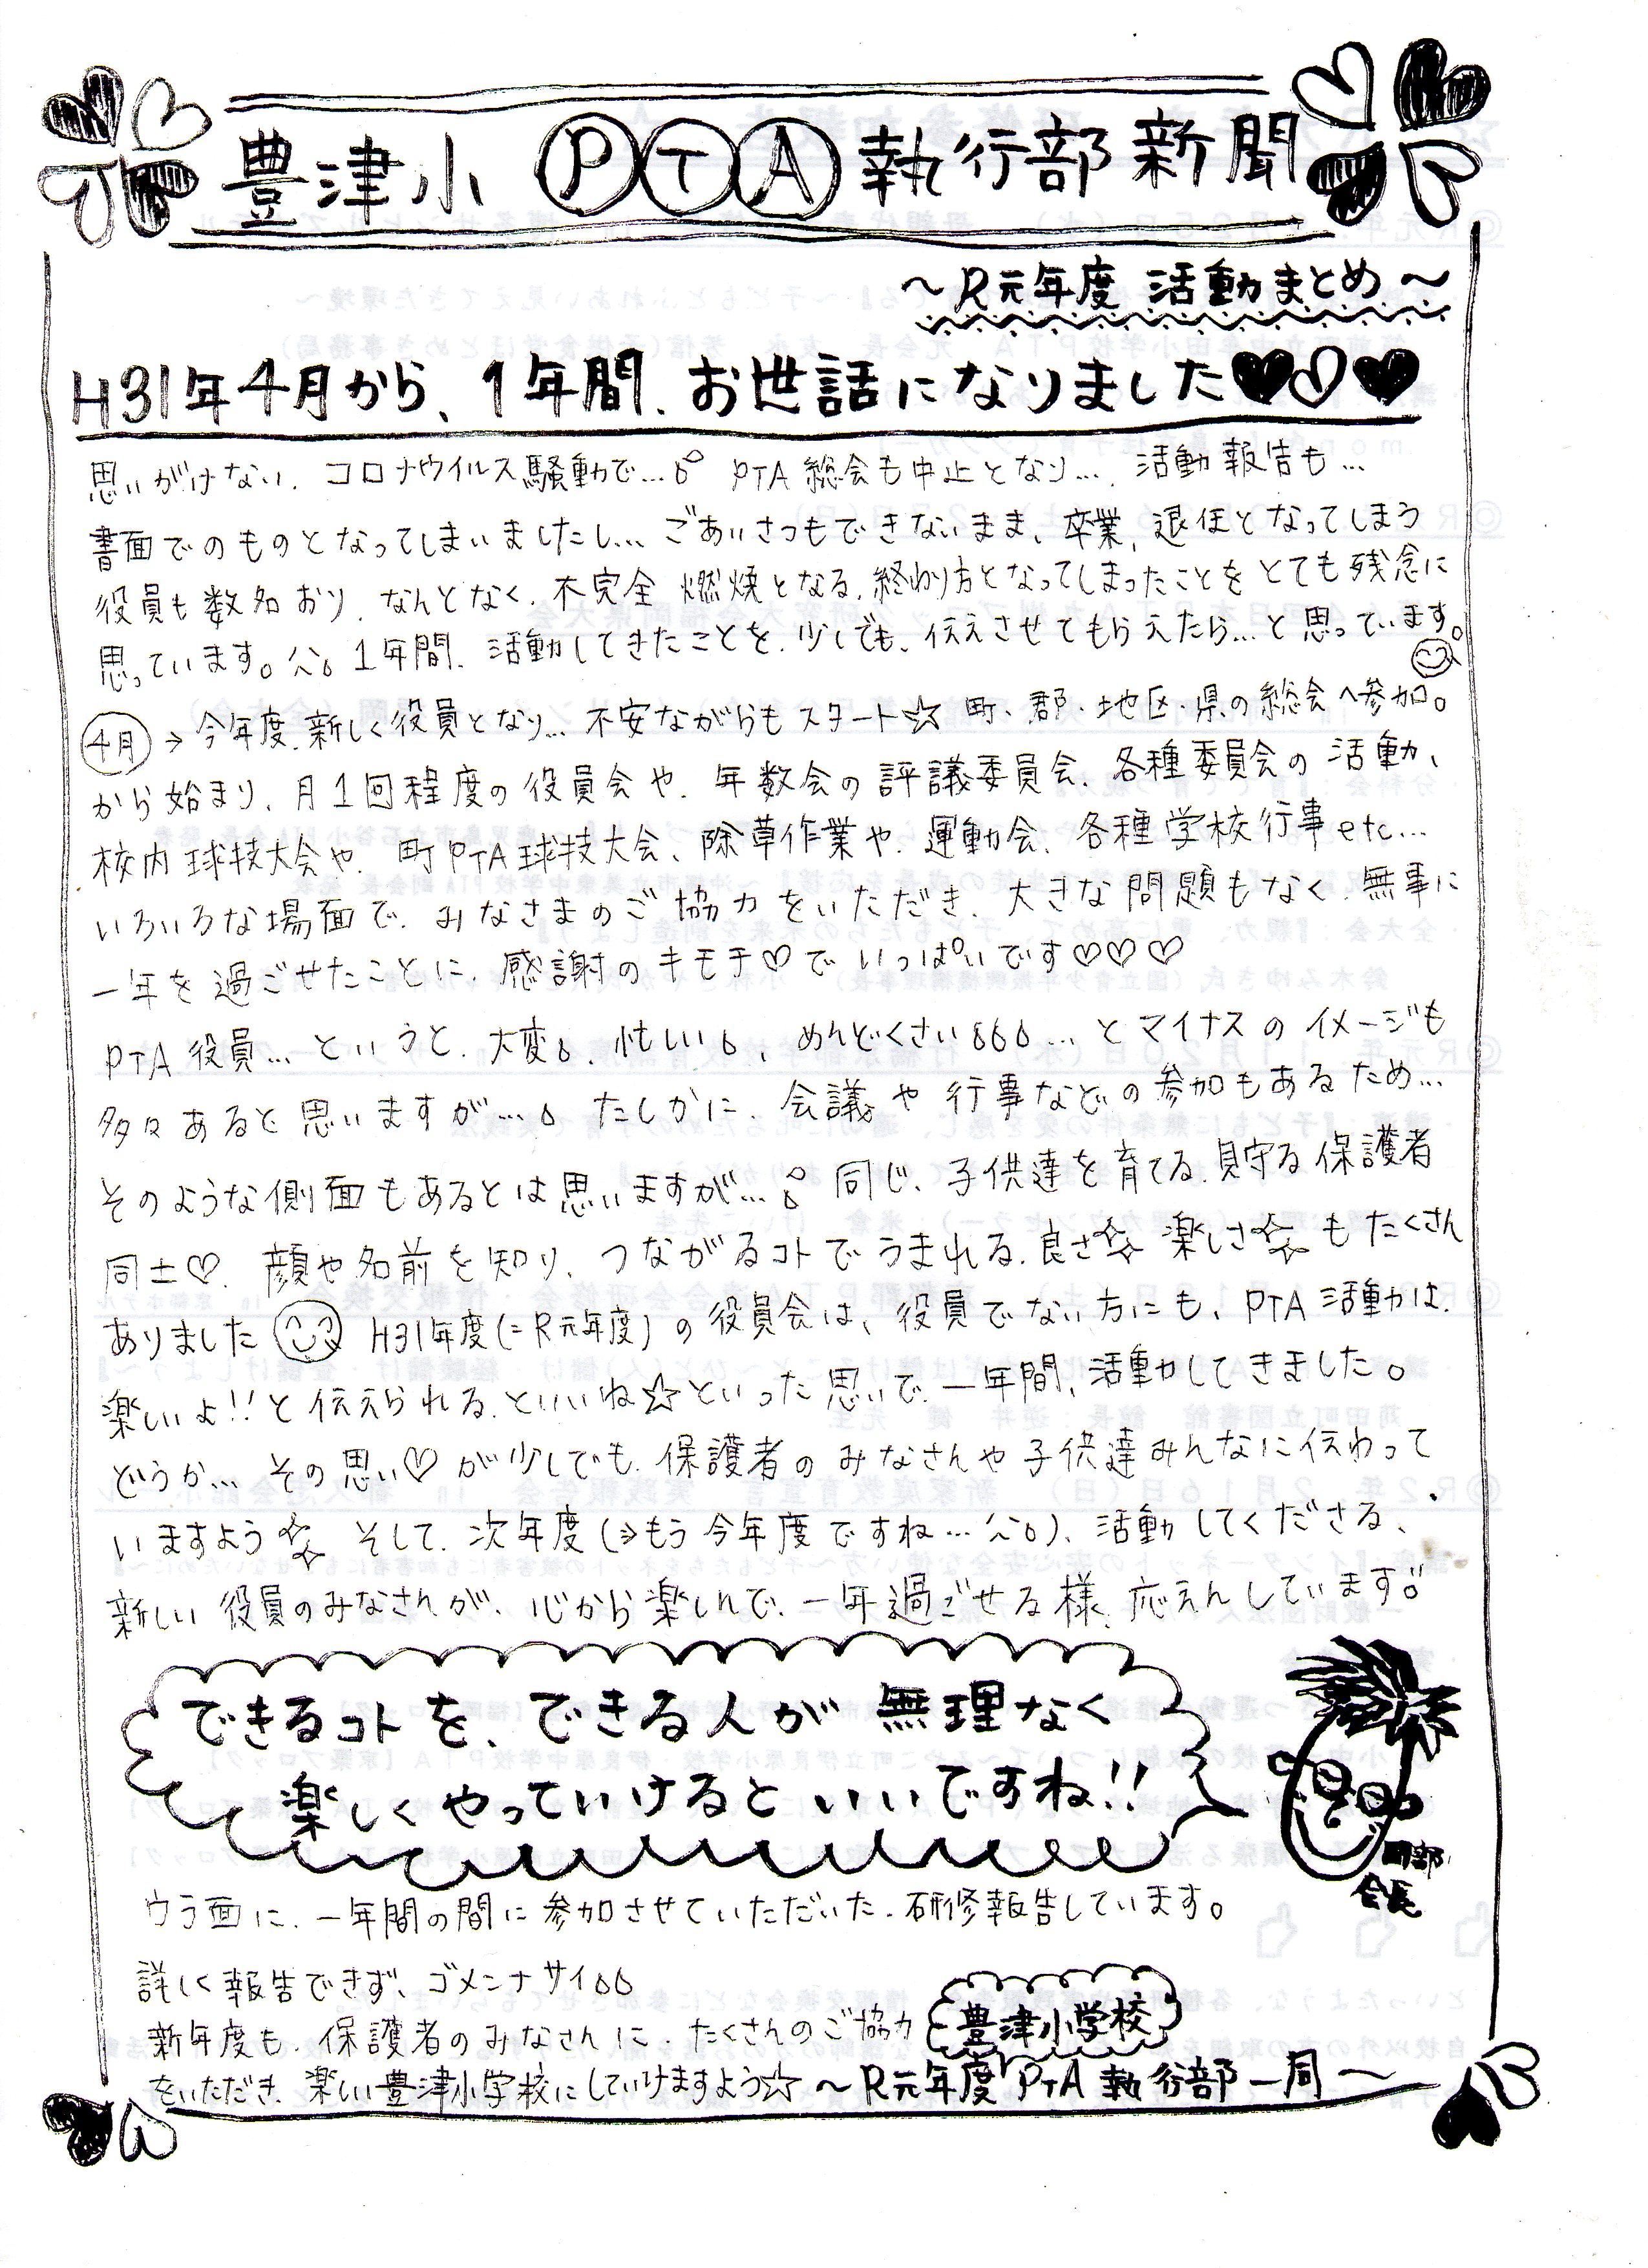 豊津小 PTA 執行部新聞
～R元年度 活動まとめ～
H31年4月から、1年間、お世話になりました♥♡♥
思いがけない、コロナウイルス騒動で… PTA総会も中止となり…、活動報告も…
書面でのものとなってしまいましたし… ごあいさつもできないまま、卒業、退任となってしまう
役員も数名おり、なんとなく、不完全燃焼となる、終わり方となってしまったことをとても残念に
思っています。^^; 1年間、活動してきたことを、少しでも、伝えさせてもらえたら…と思っています。
4月→今年度、新しく役員となり… 不安ながらもスタート☆ 町、郡・地区・県の総会へ参加。
から始まり、月1回程度の役員会や、年数会の評議委員会、各種委員会の活動、
校内球技大会や、町PTA球技大会、除草作業や、運動会、各種学校行事etc…
いろいろな場面で、みなさまのご協力をいただき、大きな問題もなく、無事に
一年を過ごせたことに、感謝のキモチ♡でいっぱいです♡♡♡
PTA役員…というと、大変、忙しい、めんどくさい…とマイナスのイメージも
多々あると思いますが…。たしかに、会議や行事などの参加もあるため…
そのような側面もあるとは思いますが… 同じ、子供達を育てる、見守る保護者
同士♡、顔や名前を知り、つながるコトでうまれる、良さ 楽しさもたくさん
ありました H31年度(=R元年度)の役員会は、役員でない方にも、PTA活動は、
楽しいよ!!と伝えられる、といいね☆といった思いで、一年間、活動してきました。
どうか… その思い♡が少しでも、保護者のみなさんや子供達みんなに伝わって
いますよう そして、次年度(⇒もう今年度ですね…^^;)、活動してくださる、
新しい役員のみなさんが、心から楽しんで、一年過ごせる様、応えんしています
できるコトを、できる人が無理なく
楽しくやっていけるといいですね!!
岡部
会長
ウラ面に、一年間の間に参加させていただいた、研修報告しています。
詳しく報告できず、ゴメンナサイ
新年度も、保護者のみなさんに、たくさんのご協力
をいただき、楽しい豊津小学校にしていけますよう☆
豊津小学校
～R元年度 PTA執行部一同～